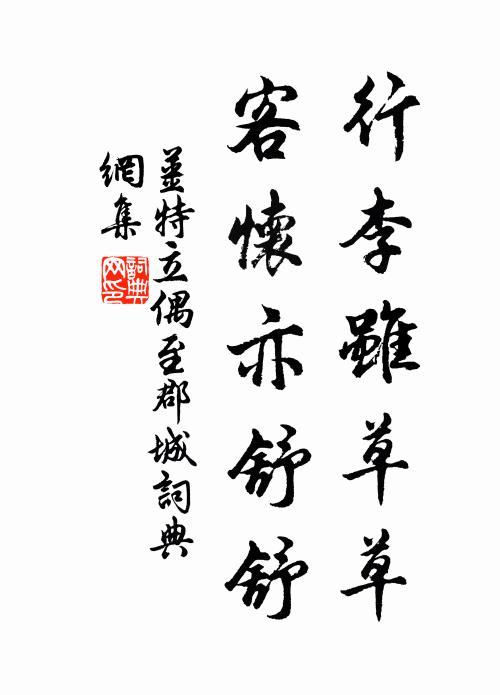 行李雖草草
客懷亦舒舒
姜特立偶至郡城詞典
網集
詞典
網印